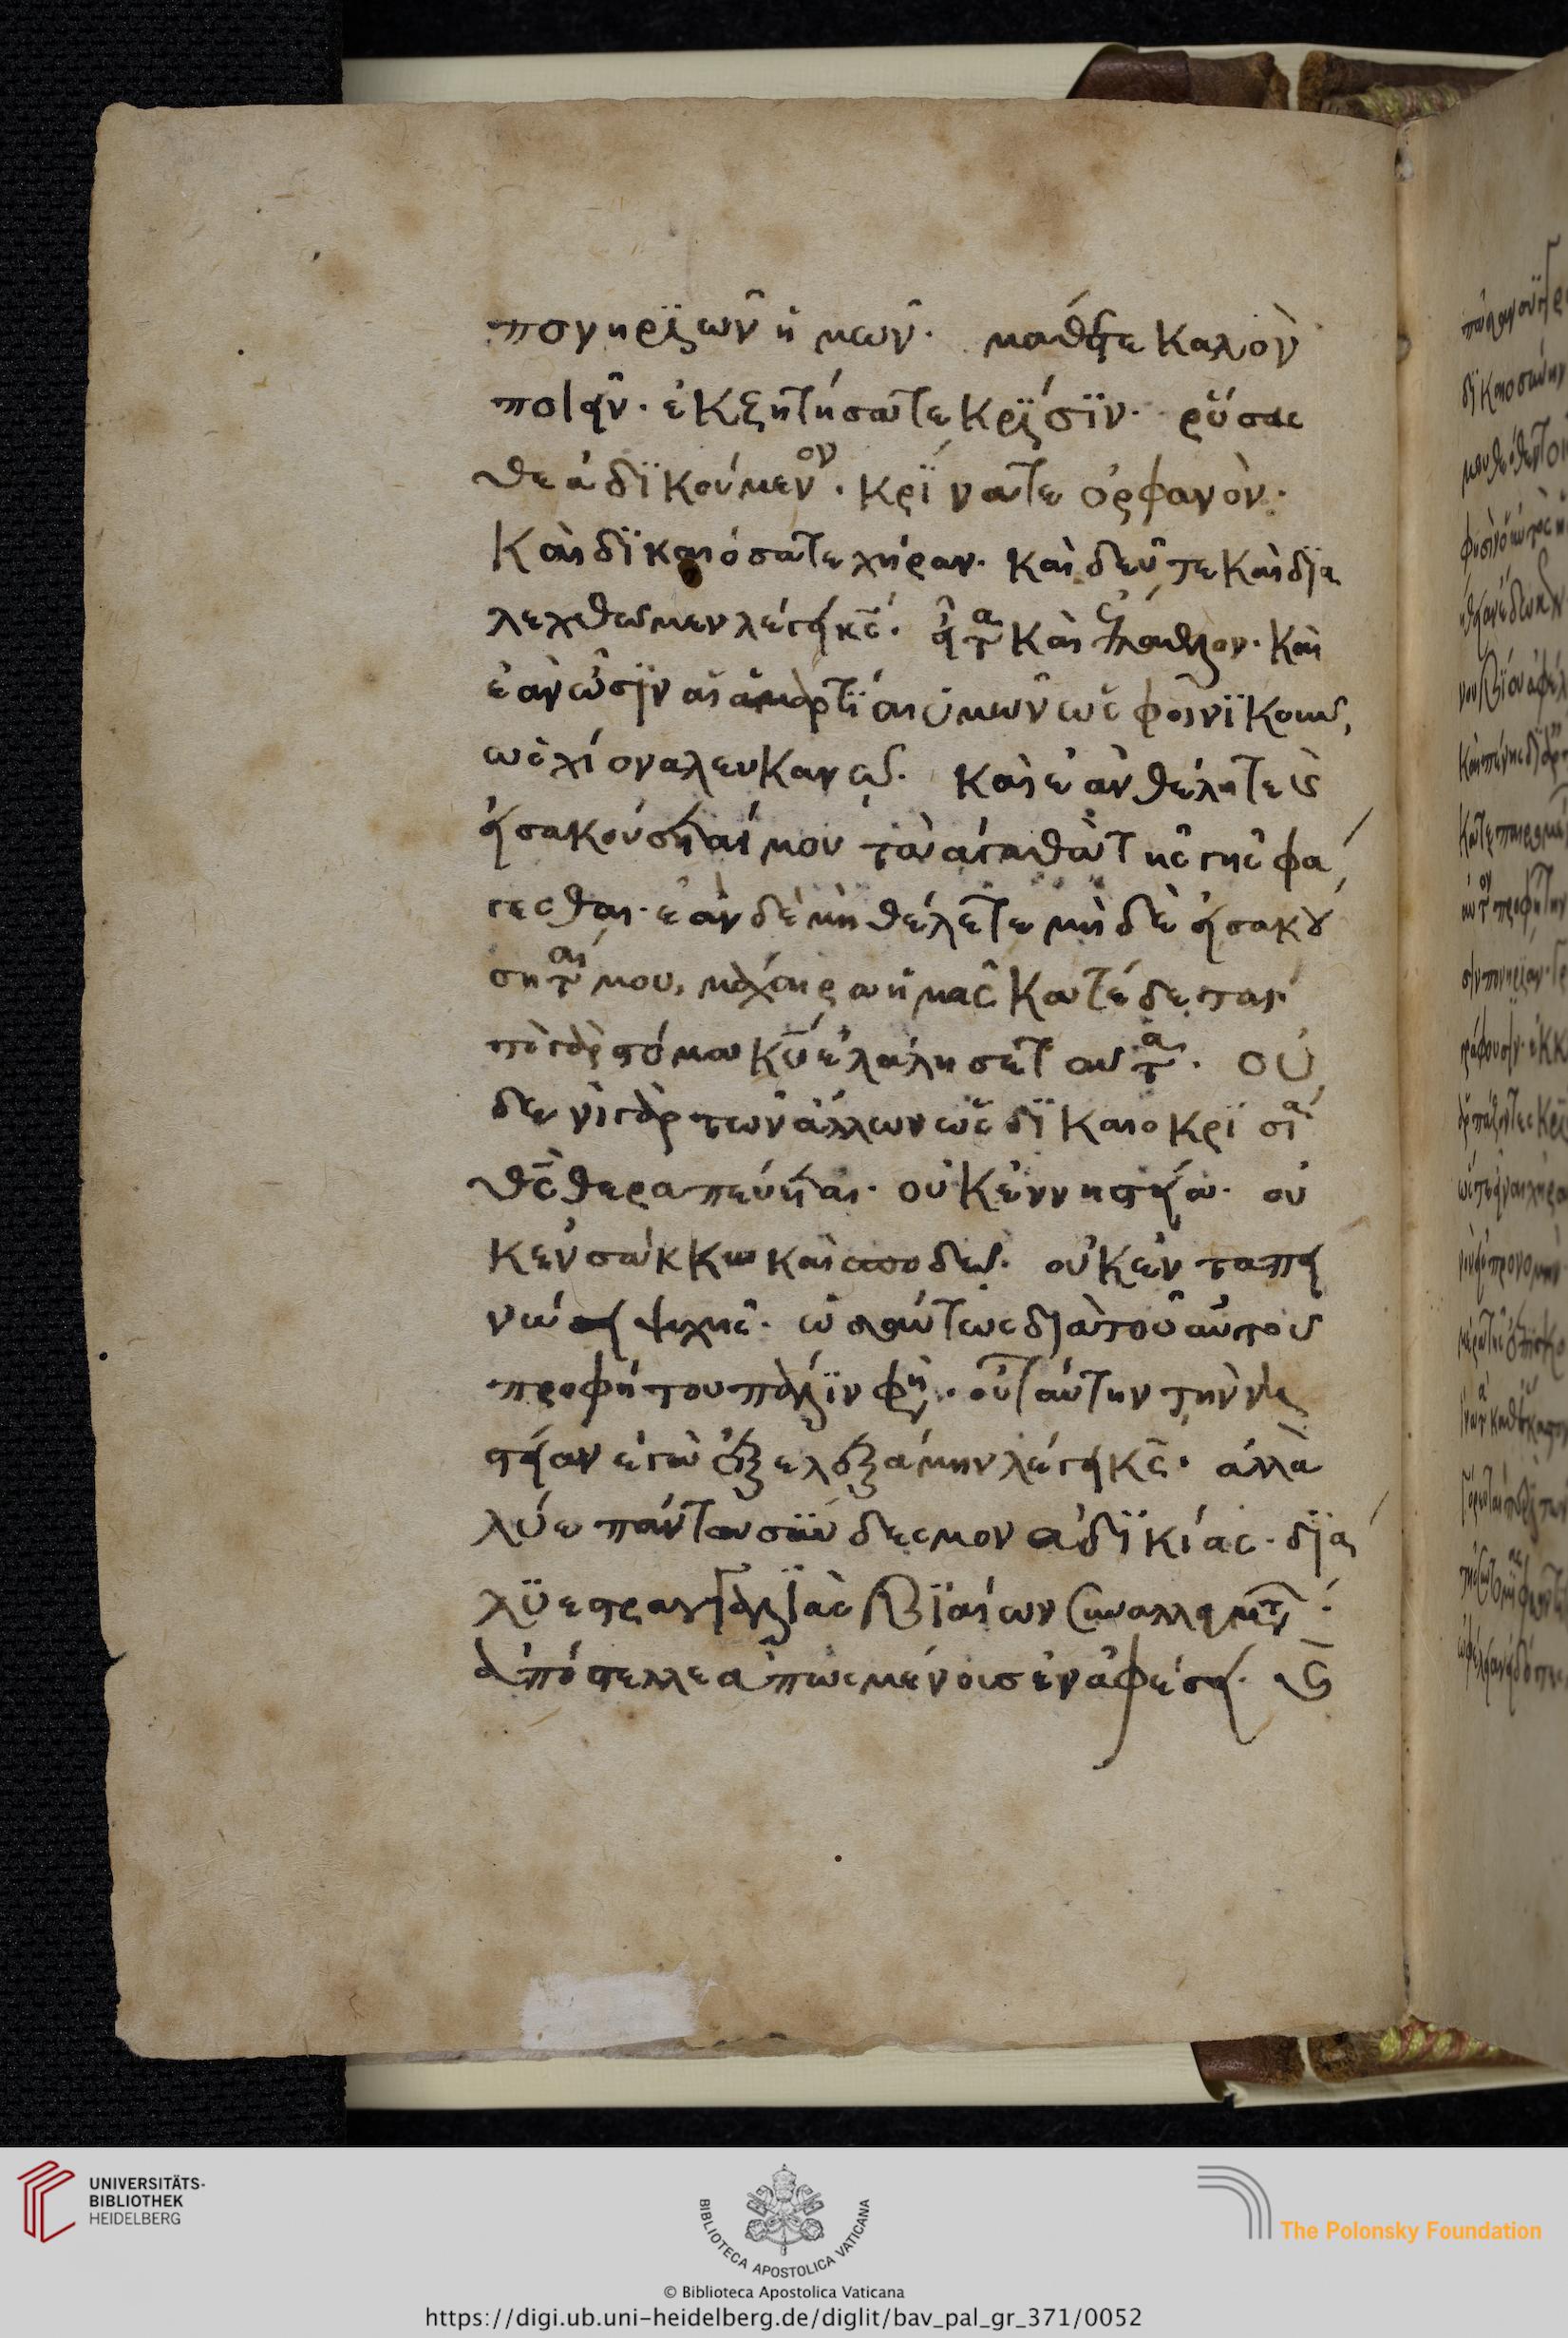 πονηριῶν ἡμῶν. μάθετε καλὸν
ποιεῖν. ἐκζητήσατε κρίσϊν. ρὕσασ
θε ἀδϊκούμενον. κρίνατε ὀρφανὸν.
Καὶ δϊκαιόσατε χήραν. καὶ δεῦτε καὶ δϊα
λεχθωμεν λέγει κς. καὶ
ἐὰν ὦσϊν αἱ ἁμαρτΐαι ὑμῶν ὡς φοινϊκουν,
ὡς χίονα λευκανῶ. καὶ ἐὰν θέλητε
εἰσακούσηταί μου τὰ ἀγαθὰ τῆς γῆς φά
γεσθαι. ἐὰν δὲ μὴ θέλετε μὴ δὲ εἰσακού
σηταί μου, μάχαιρα ἡμᾶς κατέδεται.
τὸ γὰρ στόμα κυ ἐλάλησε ταῦτα. οὐ
δενὶ γὰρ τῶν ἄλλων ὡς δϊκαιοκρισία
θς θεραπεύεται. οὐκ ἐν νηστεία. οὐ
κ ἐν σάκκω καὶ σποδῶ. οὐκ ἐν ταπει
νώσει ψυχῆς. ὡσαύτως διὰ τοῦ αὐτοῦ
προφήτου πάλϊν φη. οὐ ταύτην τὴν νη
στείαν ἐγὼ ἐξελεξάμην λέγει κς. ἀλλὰ
λύε πάντα σϋνδεσμον ἀδϊκίας. δϊα
λϋε στραγγαλιὰς βϊαίων συναλλαγμάτων.
ἀπόστελλε ἀπωσμένοισ ἐν ἀφέσει.
UNIVERSITÄTS-
BIBLIOTHEK
HEIDELBERG
BIBLIOTECA APOSTOLICA VATICANA
The Polonsky Foundation
© Biblioteca Apostolica Vaticana
https://digi.ub.uni-heidelberg.de/diglit/bav_pal_gr_371/0052